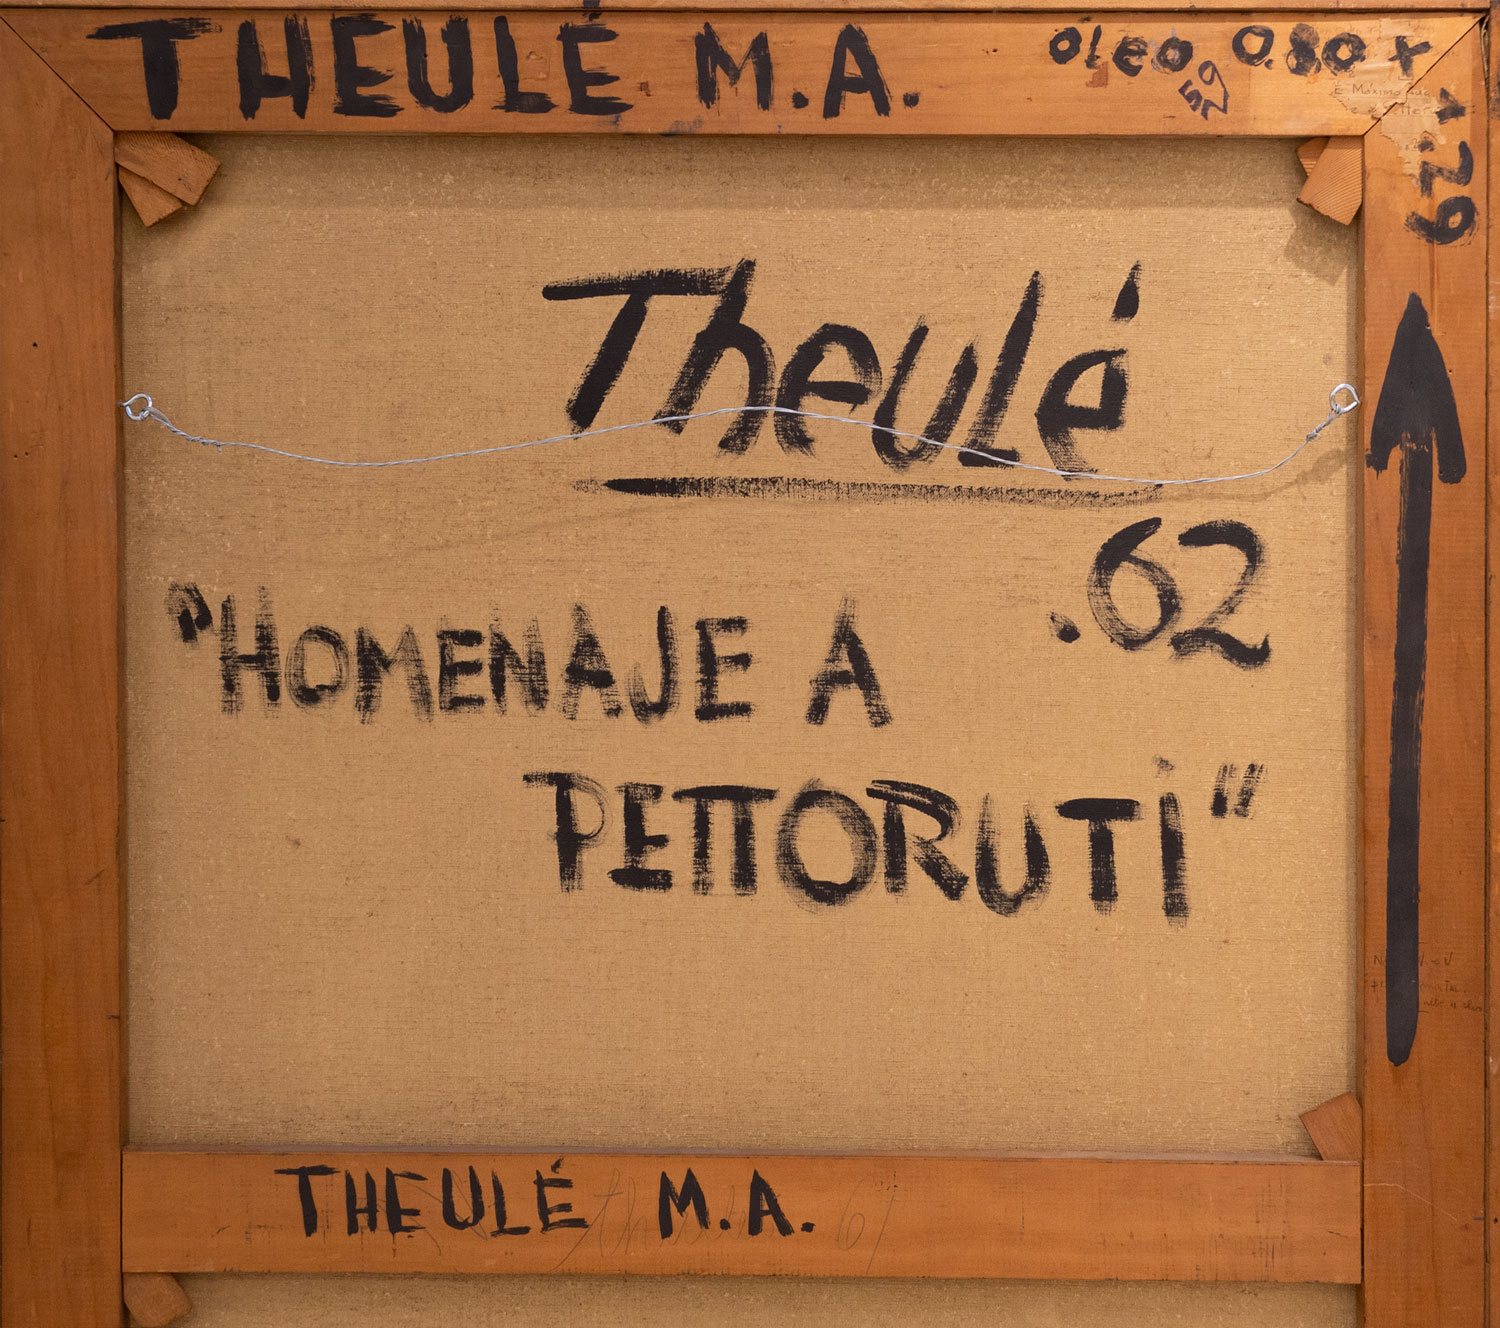 THEULÉ M.A. oleo 0.80 x
1.29
59
Theulé
.62
"HOMENAJE A
PETTORUTI"
THEULÉ M.A.
61